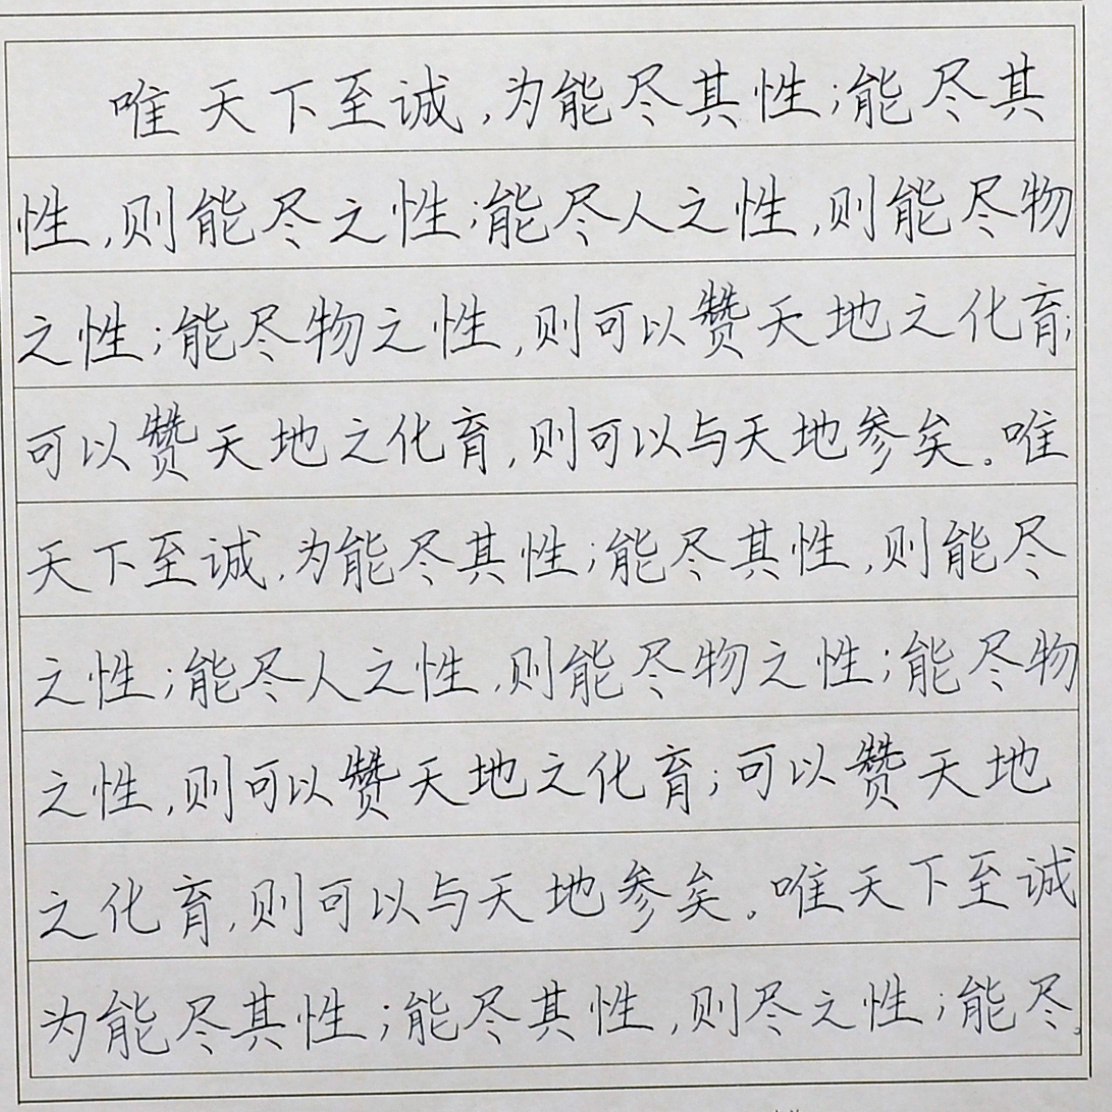 唯天下至诚,为能尽其性;能尽其
性,则能尽之性;能尽人之性,则能尽物
之性;能尽物之性,则可以赞天地之化育;
可以赞天地之化育,则可以与天地参矣。唯
天下至诚,为能尽其性;能尽其性,则能尽
之性;能尽人之性,则能尽物之性;能尽物
之性,则可以赞天地之化育;可以赞天地
之化育,则可以与天地参矣。唯天下至诚
为能尽其性;能尽其性,则尽之性;能尽。